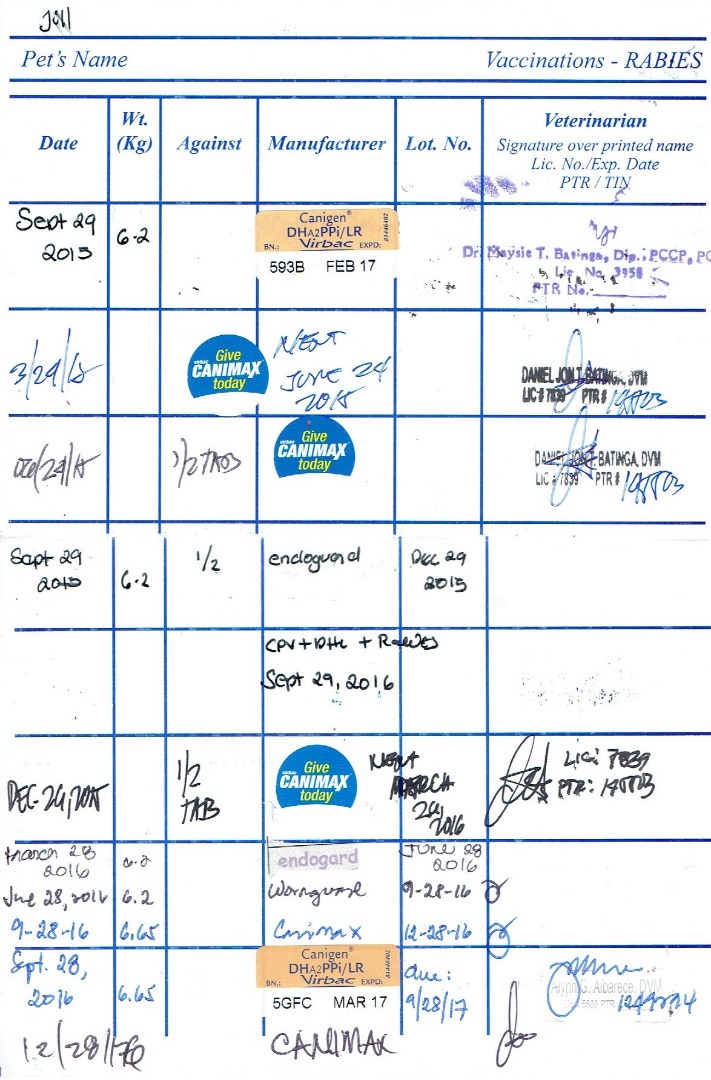 Pet's Name
Vaccinations - RABIES
Date
Wt.
(Kg)
Against
Manufacturer
Lot. No.
Veterinarian
Signature over printed name
Lic. No./Exp. Date
PTR / TIN
Sept 29
2015
6.2
Canigen®
DHA2PPi/LR
BN.: Virbac EXPD:
81446402
593B FEB 17
Dr. Maysie T. Batinga, Dip., PCCP, PC
Lic. No. 3958
PTR No.
3/29/15
virbac
Give
CANIMAX
today
NEXT
JUNE 24
2015
DANIEL JON T. BATINGA, DVM
LIC # 7839 PTR #
24/15
1/2 TAB
virbac
Give
CANIMAX
today
DANIEL JON T. BATINGA, DVM
LIC # 7839 PTR #
Sept 29
2015
6.2
1/2
endoguard
Dec 29
2015
CPV + DHL + Rabies
Sept 29, 2016
DEC. 29, 2015
1/2
TAB
virbac
Give
CANIMAX
today
NEXT
MARCH
29,
2016
Lic: 7839
PTR:
March 28
2016
6.2
endogard
June 28
2016
June 28, 2016
6.2
9-28-16
9-28-16
6.65
Canimax
12-28-16
Sept. 28,
2016
6.65
Canigen®
DHA2PPi/LR
BN.: Virbac EXPD:
81446402
5GFC MAR 17
due:
9/28/17
G. Albarece, DVM
12/28/16
CANIMAX